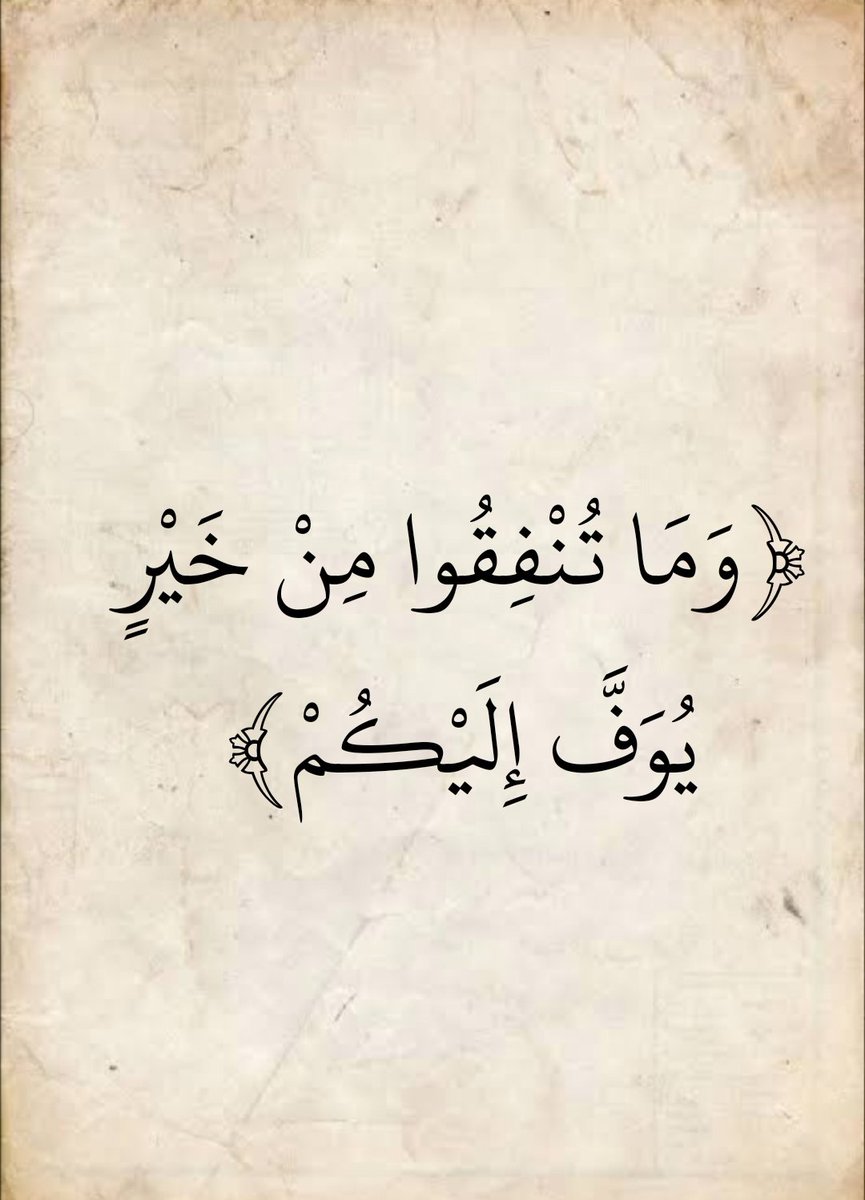 ﴿وَمَا تُنْفِقُوا مِنْ خَيْرٍ
يُوَفَّ إِلَيْكُمْ﴾